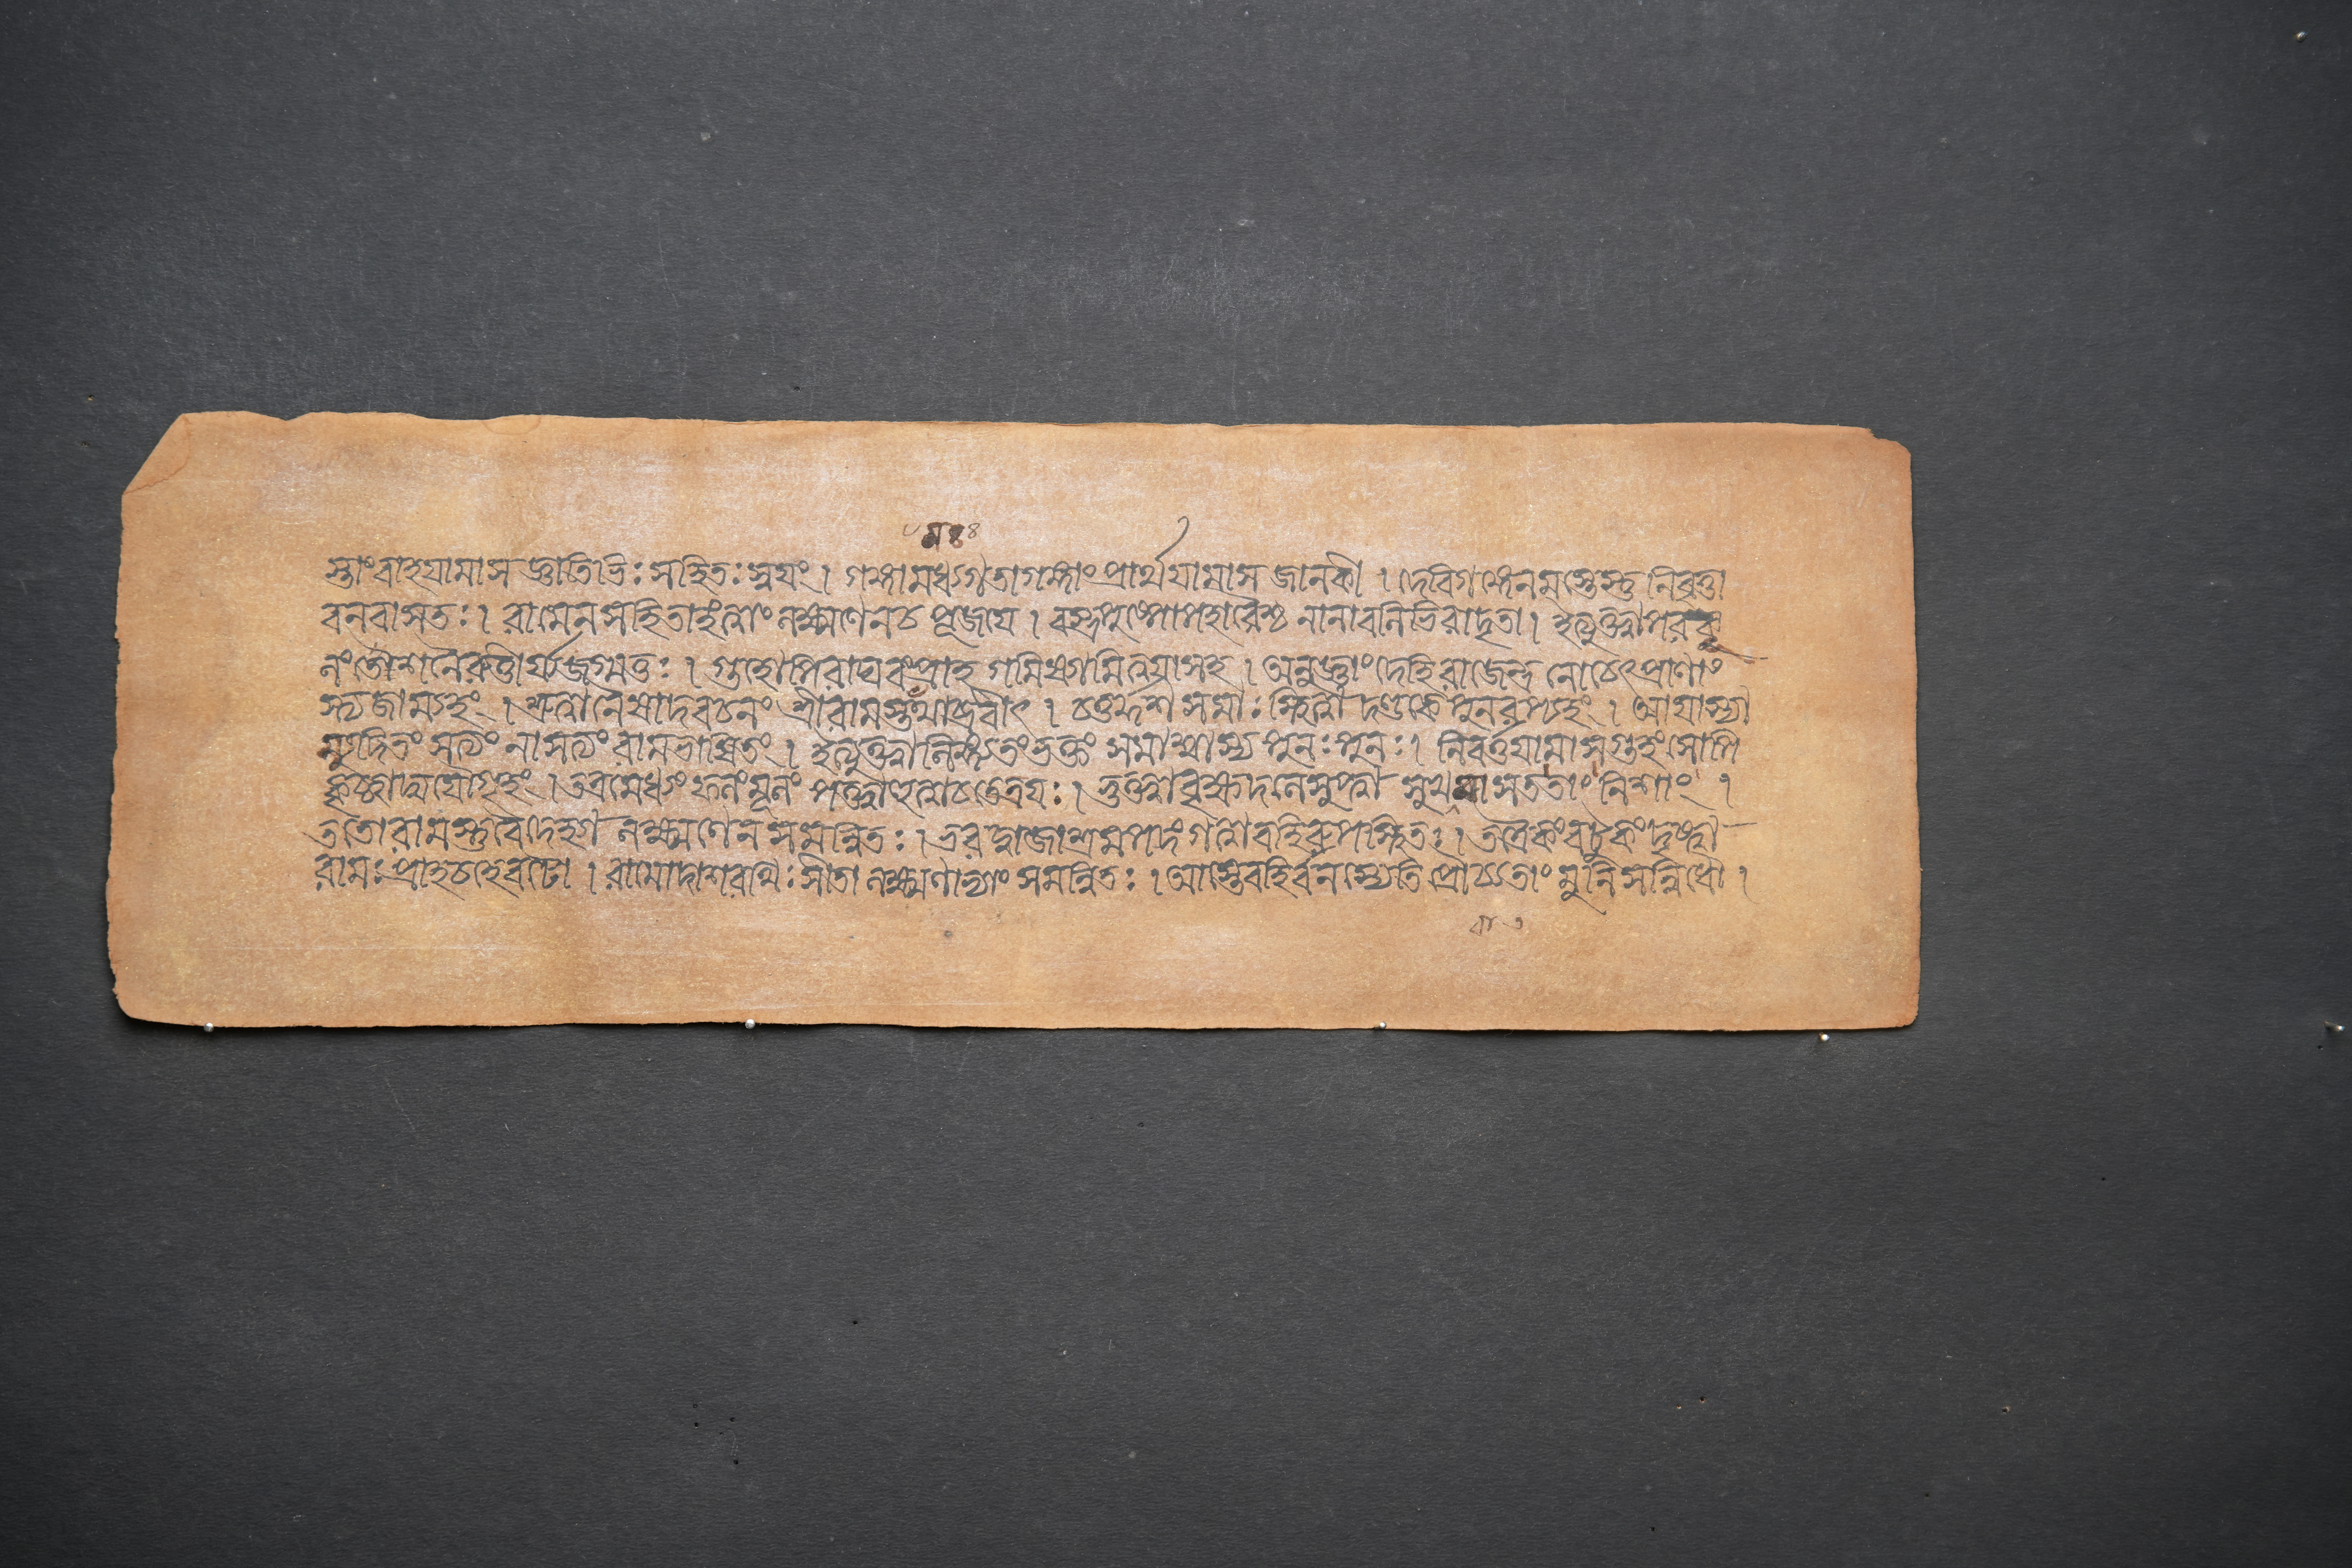 স্তাং বাহযামাস জ্ঞাতিভিঃ সহিতঃ স্বযং । গঙ্গামধ্যগতাগঙ্গাং প্রার্থযামাস জানকী । দেবিগঙ্গেনমস্তেস্তু নিবৃত্তা
বনবাসতঃ । রামেন সহিতাহংত্বাং লক্ষ্মণেনচ পূজযে । বস্ত্রপুষ্পোপহারৈশ্চ নানাবলিভিরাদৃতা । ইত্যুক্ত্বাপরকূ
লংতৌশনৈরুত্তীর্য্যজগ্মতুঃ । গুহোপিরাঘবংপ্রাহ গমিষ্যামিত্বযাসহ । অনুজ্ঞাংদেহিরাজেন্দ্র নোচেৎপ্রাণাং
স্ত্যজাম্যহং । শ্রুত্বানৈষাদবচনং শ্রীরামস্তমথাব্রবীৎ । চতুর্দ্দশ সমাঃ স্থিত্বা দণ্ডকে পুনরপ্যহং । আযাস্যা
ম্যুদিতং সত্যং নাসত্যং রামভাষিতং । ইত্যুক্ত্বালিঙ্গ্যতংভক্তং সমাশ্বাস্য পুনঃপুনঃ । নিবর্ত্তযামাসগুহং সোপি
কৃচ্ছ্রাদ্যযৌগৃহং । তত্রমেধ্যং ফলংমূলং পক্ত্বাহুত্বাচতেত্রযঃ । ভুক্ত্বাবৃক্ষদলেসুপ্ত্বা সুখমাসততাং নিশাং ।
ততোরামস্তুবৈদেহ্যা লক্ষ্মণেন সমন্বিতঃ । ভরদ্বাজাশ্রমপদংগত্বাবহিরুপস্থিতঃ । তত্রৈকংবটুকংদৃষ্ট্বা
রামঃ প্রাহচহেবটো । রামোদাশরথিঃ সীতা লক্ষ্মণাভ্যাং সমন্বিতঃ । আস্তেবহির্বনস্যেতি প্রোচ্যতাং মুনিসন্নিধৌ ।